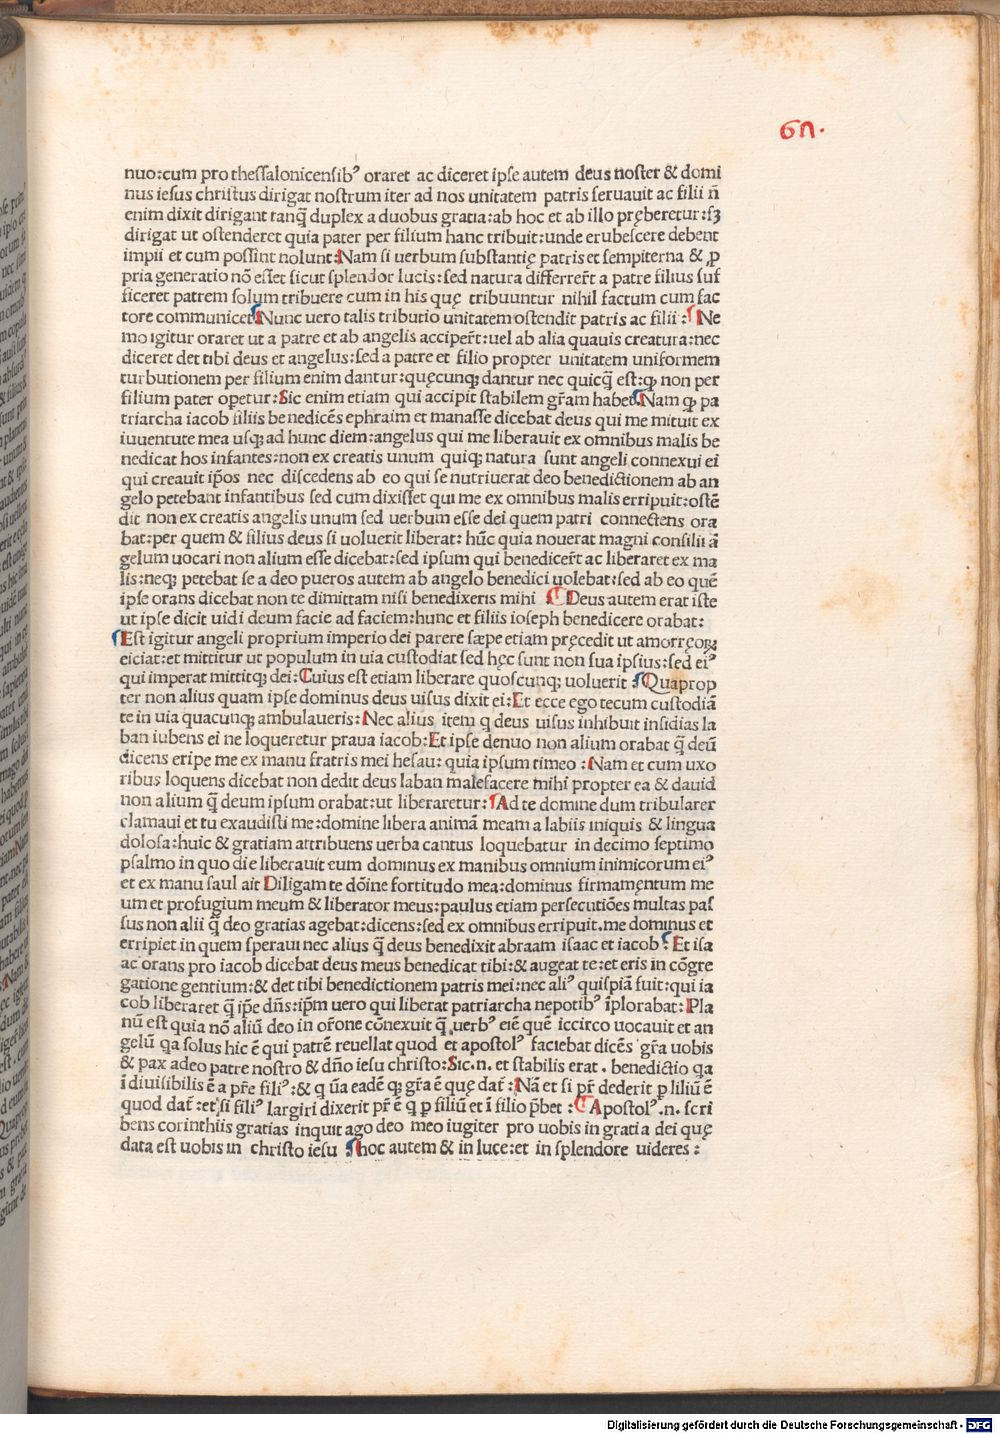 6n.
nuo:cum pro thessalonicensibꝰ oraret ac diceret ipse autem deus noster & domi
nus iesus christus dirigat nostrum iter ad nos unitatem patris seruauit ac filii n̄
enim dixit dirigant tanq̃ duplex a duobus gratia:ab hoc et ab illo pręberetur:sꝫ
dirigat ut ostenderet quia pater per filium hanc tribuit:unde erubescere debent
impii et cum possint nolunt:Nam si uerbum substantię patris et sempiterna & ꝓ
pria generatio nō esset sicut splendor lucis:sed natura differrer̃t a patre filius suf
ficeret patrem solum tribuere cum in his quę tribuuntur nihil factum cum fac
tore communicet Nunc uero talis tributio unitatem ostendit patris ac filii : Ne
mo igitur oraret ut a patre et ab angelis acciper̃t:uel ab alia quauis creatura:nec
diceret det tibi deus et angelus:sed a patre et filio propter unitatem uniformem
turbutionem per filium enim dantur:quęcunqꝫ dantur nec quicq̃ est:ꝙ non per
filium pater opetur:Sic enim etiam qui accipit stabilem gr̃am habet.Nam ꝙ pa
triarcha iacob filiis benedicēs ephraim et manasse dicebat deus qui me mituit ex
iuuentute mea usqꝫ ad hunc diem:angelus qui me liberauit ex omnibus malis be
nedicat hos infantes:non ex creatis unum quiqꝫ natura sunt angeli connexui ei
qui creauit ip̃os nec discedens ab eo qui se nutriuerat deo benedictionem ab an
gelo petebant infantibus sed cum dixisset qui me ex omnibus malis erripuit:ostē
dit non ex creatis angelis unum sed uerbum esse dei quem patri connectens ora
bat:per quem & filius deus si uoluerit liberat: hūc quia nouerat magni consilii ā
gelum uocari non alium esse dicebat:sed ipsum qui benedicer̃t ac liberaret ex ma
lis:neqꝫ petebat se a deo pueros autem ab angelo benedici uolebat:sed ab eo quē
ipse orans dicebat non te dimittam nisi benedixeris mihi Deus autem erat iste
ut ipse dicit uidi deum facie ad faciem:hunc et filiis ioseph benedicere orabat:
Est igitur angeli proprium imperio dei parere sæpe etiam pręcedit ut amorręoꝝ
eiciat:et mittitur ut populum in uia custodiat sed hęc sunt non sua ipsius:sed eiꝰ
qui imperat mittitqꝫ dei:Cuius est etiam liberare quoscunqꝫ uoluerit :Quaprop
ter non alius quam ipse dominus deus uisus dixit ei:Et ecce ego tecum custodiā
te in uia quacunqꝫ ambulaueris:Nec alius item q deus uisus inhibuit insidias la
ban iubens ei ne loqueretur praua iacob:Et ipse denuo non alium orabat q̃ deū
dicens eripe me ex manu fratris mei hesau: quia ipsum timeo :Nam et cum uxo
ribus loquens dicebat non dedit deus laban malefacere mihi propter ea & dauid
non alium q̃ deum ipsum orabat:ut liberaretur: Ad te domine dum tribularer
clamaui et tu exaudisti me:domine libera animā meam a labiis iniquis & lingua
dolosa:huic & gratiam attribuens uerba cantus loquebatur in decimo septimo
psalmo in quo die liberauit eum dominus ex manibus omnium inimicorum eiꝰ
et ex manu saul ait Diligam te dōine fortitudo mea:dominus firmamęntum me
um et profugium meum & liberator meus:paulus etiam persecutiōes multas pas
sus non alii q̃ deo gratias agebat:dicens:sed ex omnibus erripuit.me dominus et
erripiet in quem speraui nec alius q̃ deus benedixit abraam isaac et iacob: Et isa
ac orans pro iacob dicebat deus meus benedicat tibi:& augeat te:et eris in cōgre
gatione gentium:& det tibi benedictionem patris mei:nec aliꝰ quispiā fuit:qui ia
cob liberaret q̃ ip̃e dn̄s:ip̃m uero qui liberat patriarcha nepotibꝰ īplorabat:Pla
nū est quia nō aliū deo in or̃one cōnexuit q̃ uerbꝰ eiē quē iccirco uocauit et an
gelū qa solus hic ē qui patrē reuellat quod et apostolꝰ faciebat dicēs gr̃a uobis
& pax adeo patre nostro & dn̄o iesu christo:Sic.n. et stabilis erat . benedictio qa
īdiuisibilis ē a pr̃e filiꝰ:& q ūa eadē qꝫ gr̃a ē quę dat̃:Nā et si pr̃ dederit ꝑ liliū ē
quod dat̃:et si filiꝰ largiri dixerit pr̃ ē q ꝑ filiū et ī filio p̃bet : Apostolꝰ.n. scri
bens corinthiis gratias inquit ago deo meo iugiter pro uobis in gratia dei quę
data est uobis in christo iesu hoc autem & in luce:et in splendore uideres :
Digitalisierung gefördert durch die Deutsche Forschungsgemeinschaft - DFG